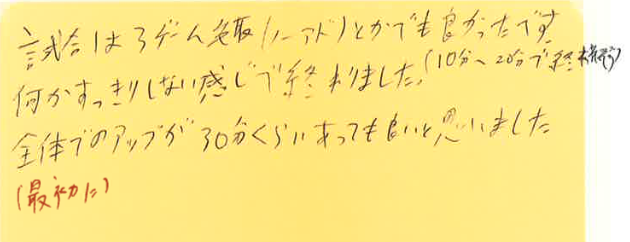 試合は3ゲーム先取(ノーアド)とかでも良かったです
何かすっきりしない感じで終わりました。(10分〜20分で終
全体でのアップが30分くらいあっても良いと思いました
(最初に)